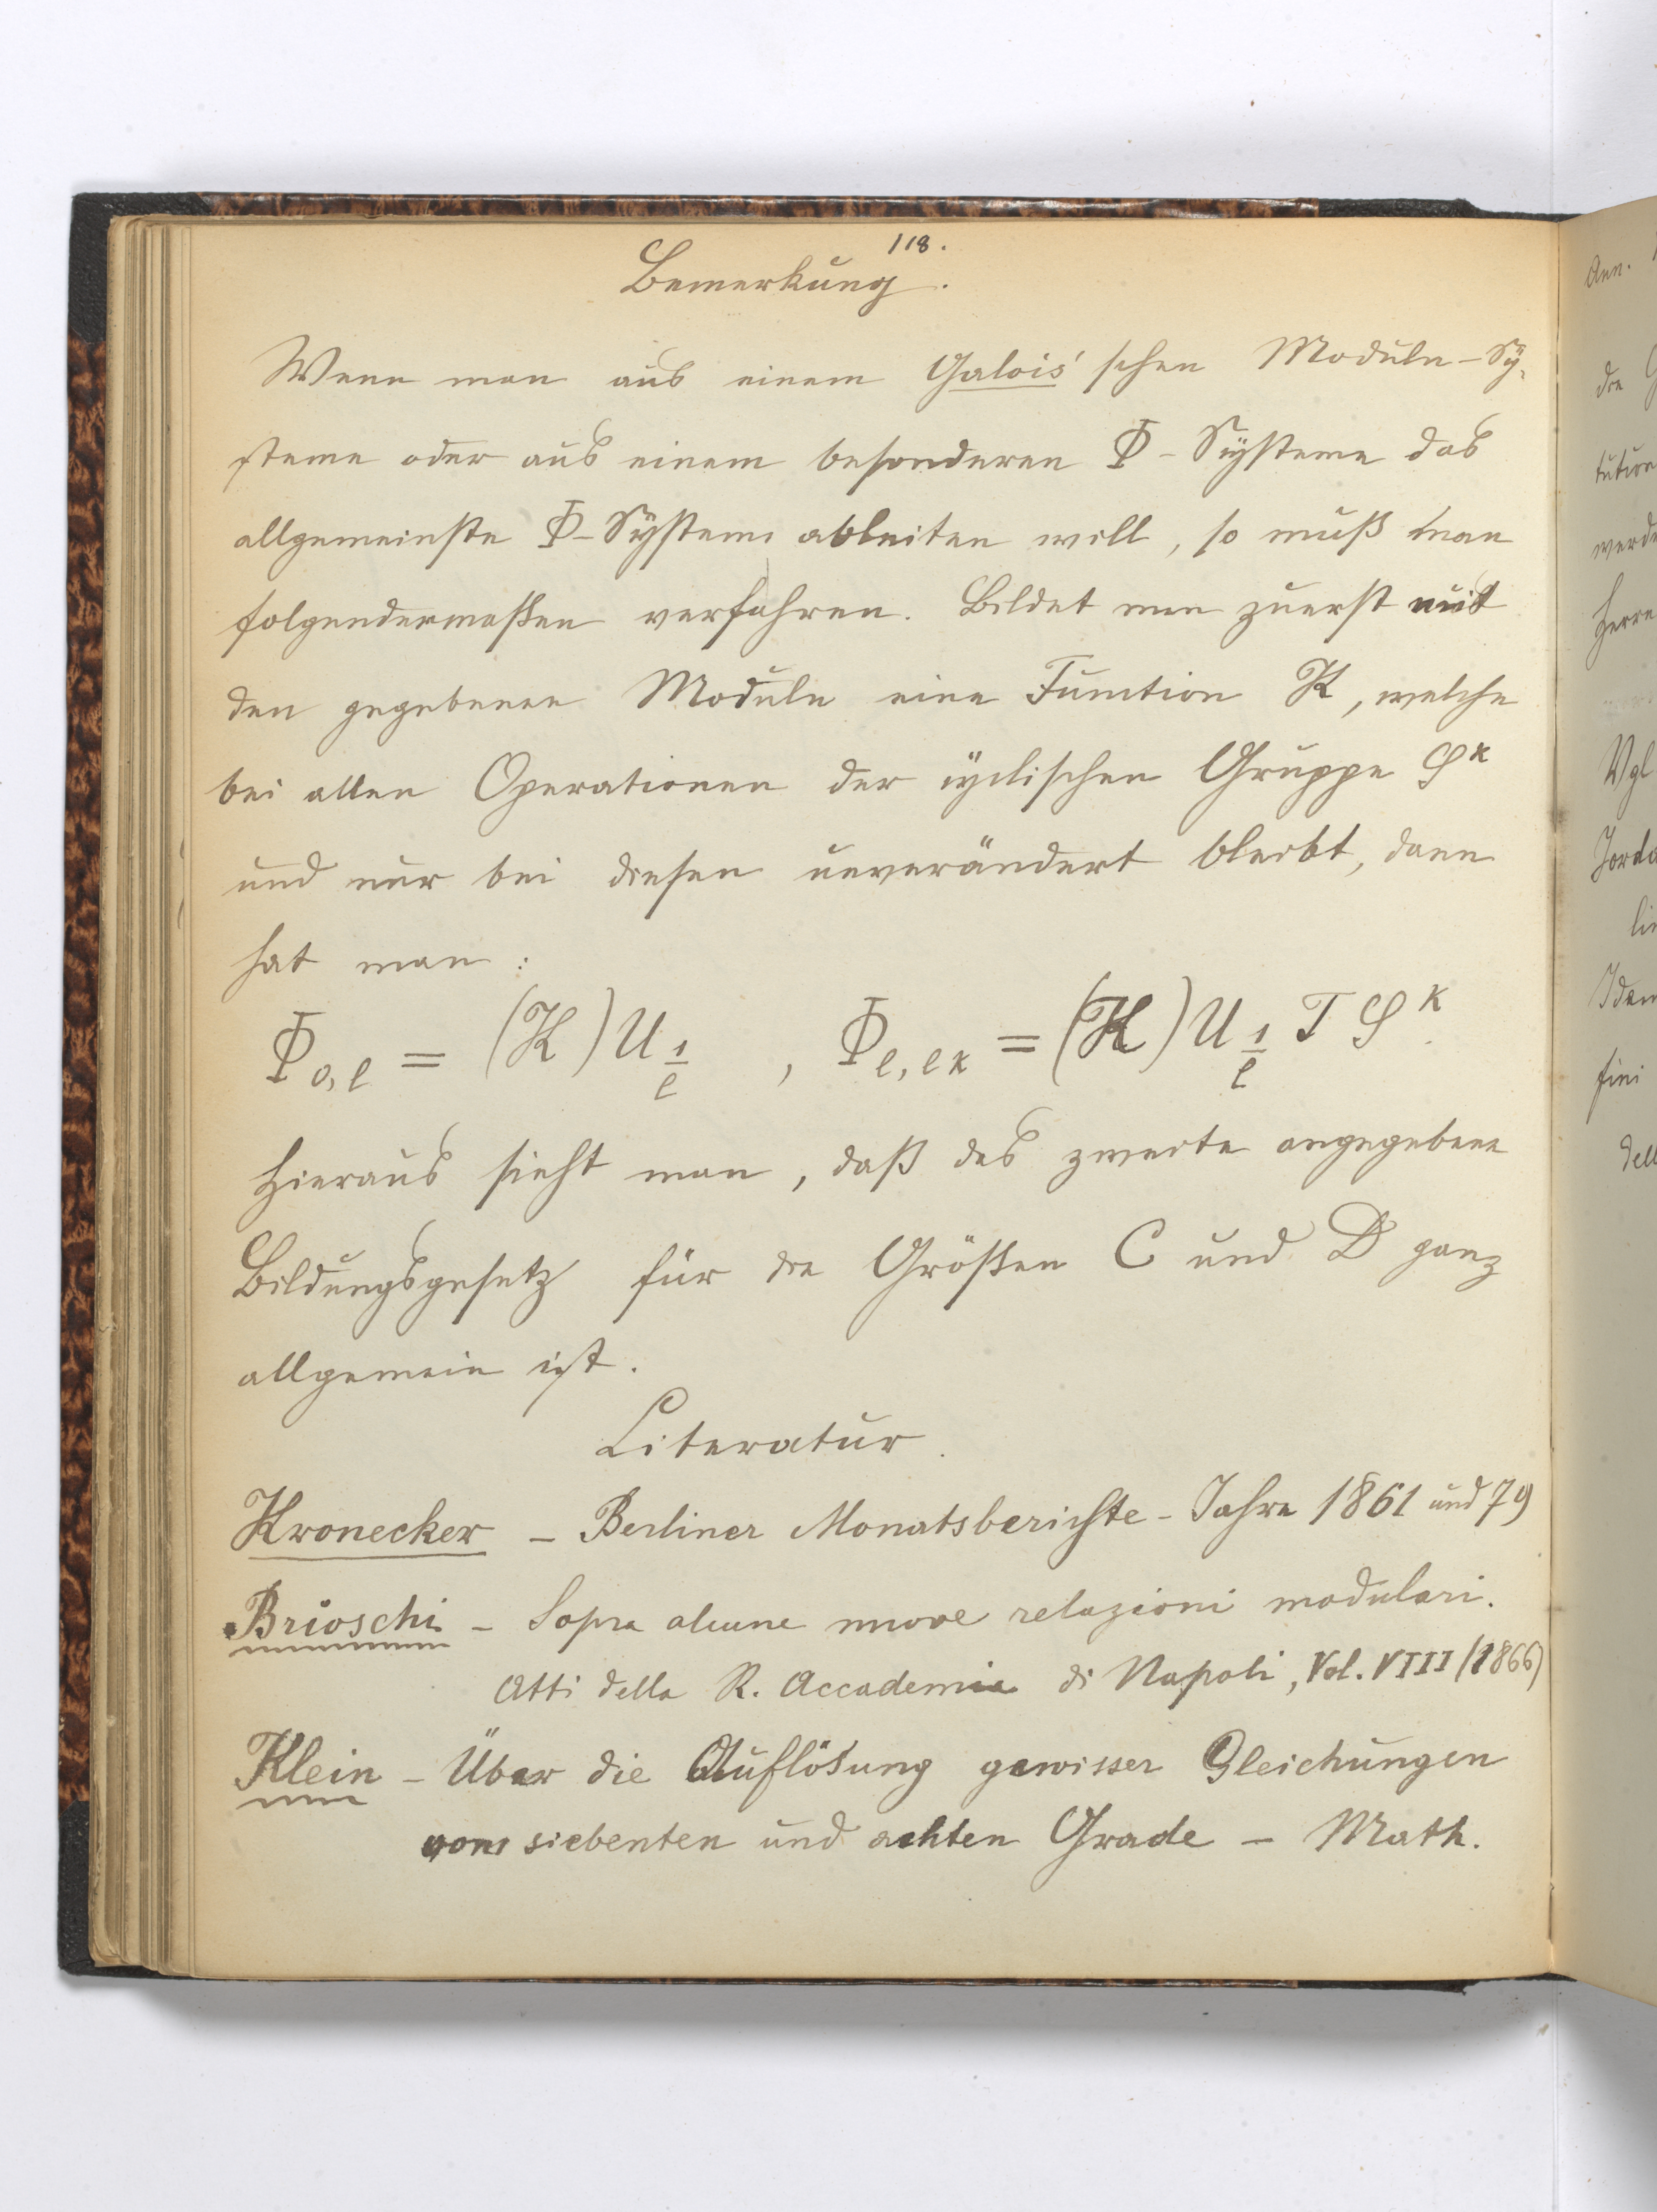 118.
Bemerkung.
Wenn man aus einem Galois'schen Moduln-Sy-
steme oder aus einem besonderen Φ-Systeme das
allgemeinste Φ-System ableiten will, so muß man
folgendermaßen verfahren. Bildet man zuerst mit
den gegebenen Moduln eine Function K, welche
bei allen Operationen der cyclischen Gruppe S^k
und nur bei diesen unverändert bleibt, dann
hat man:
Φ_{0,l} = (K) U_{1/l} , Φ_{l,lk} = (K) U_{1/l} T S^k.
Hieraus sieht man, daß das zweite angegebene
Bildungsgesetz für die Größen C und D ganz
allgemein ist.
Literatur.
Kronecker – Berliner Monatsberichte – Jahre 1861 und 79
Brioschi – Sopra alcune nuove relazioni modulari.
Atti della R. Accademia di Napoli, Vol. VIII (1866)
Klein – Über die Auflösung gewisser Gleichungen
vom siebenten und achten Grade – Math.
Ann.
die
tution
werde
Herrn
Vgl
Jorda
Idem
fini
dell